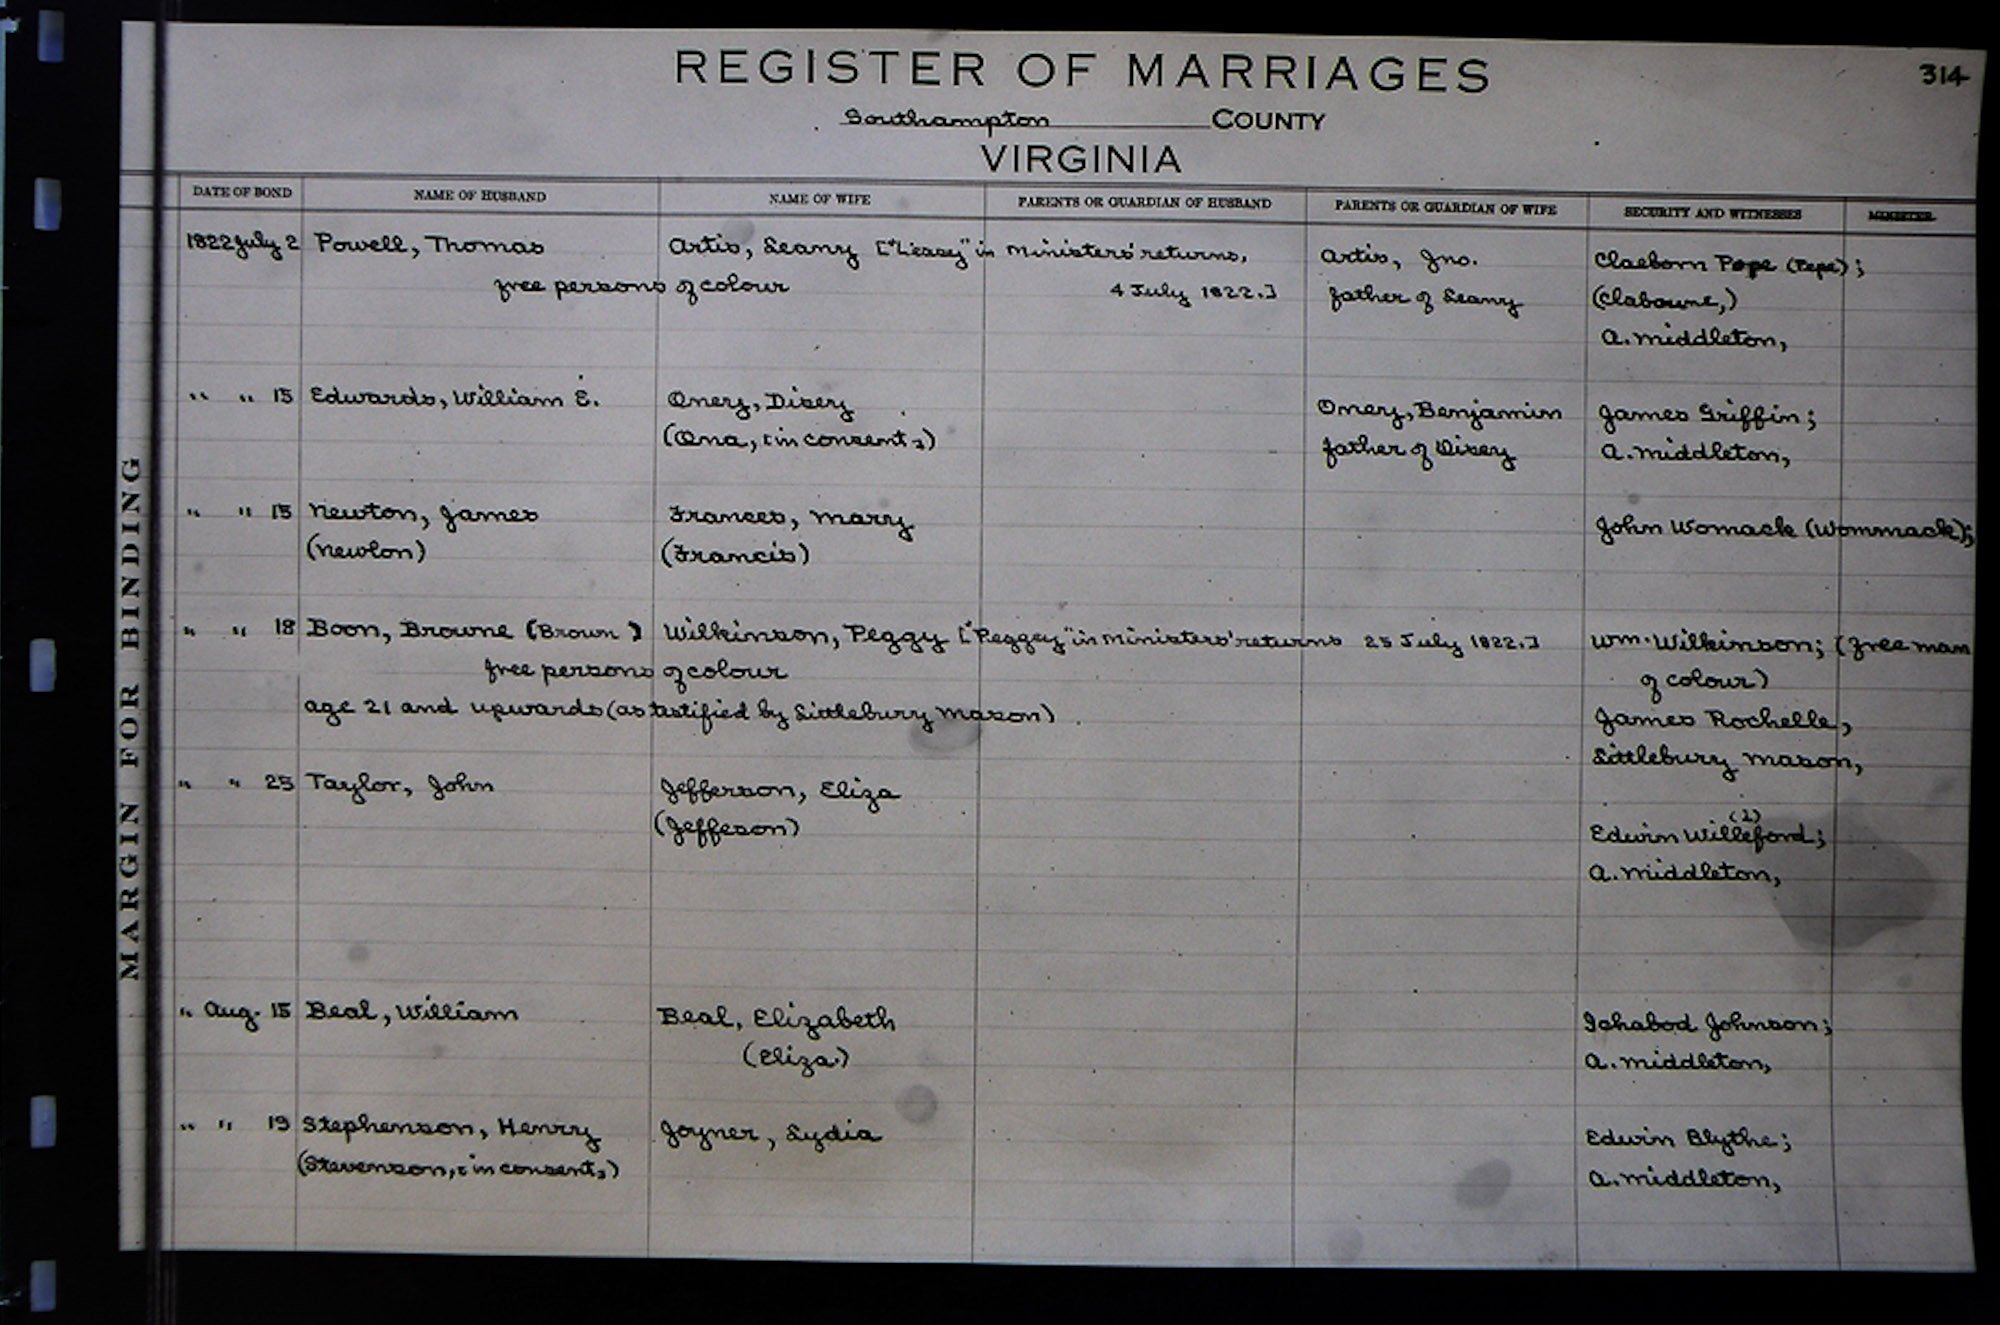 REGISTER OF MARRIAGES
314
Southampton COUNTY
VIRGINIA
MARGIN FOR BINDING
DATE OF BOND NAME OF HUSBAND NAME OF WIFE PARENTS OR GUARDIAN OF HUSBAND PARENTS OR GUARDIAN OF WIFE SECURITY AND WITNESSES MINISTER
1822 July 2 Powell, Thomas Artis, Seany ["Leasy" in Ministers' returns, Artis, Jno. Claeborn Pope (Pepe);
free persons of colour 4 July 1822.] father of Seany (Claborne,)
A. Middleton,
" " 15 Edwards, William E. Omery, Disey Omery, Benjamin James Griffin;
(Oma, [in consent,]) father of Disey A. Middleton,
" " 15 Newton, James Frances, Mary John Womack (Wommack);
(Newlon) (Francis)
" " 18 Boon, Browne (Brown) Wilkinson, Peggy ["Peggey" in Ministers' returns 25 July 1822.] Wm. Wilkinson; (free man
free persons of colour of colour)
age 21 and upwards (as testified by Littlebury Mason) James Rochelle,
Littlebury Mason,
" " 25 Taylor, John Jefferson, Eliza
(Jeffeson) (1)
Edwin Willeford;
A. Middleton,
" Aug. 15 Beal, William Beal, Elizabeth Ichabod Johnson;
(Eliza.) A. Middleton,
" " 19 Stephenson, Henry Joyner, Lydia Edwin Blythe;
(Stevenson, [in consent,]) A. Middleton,